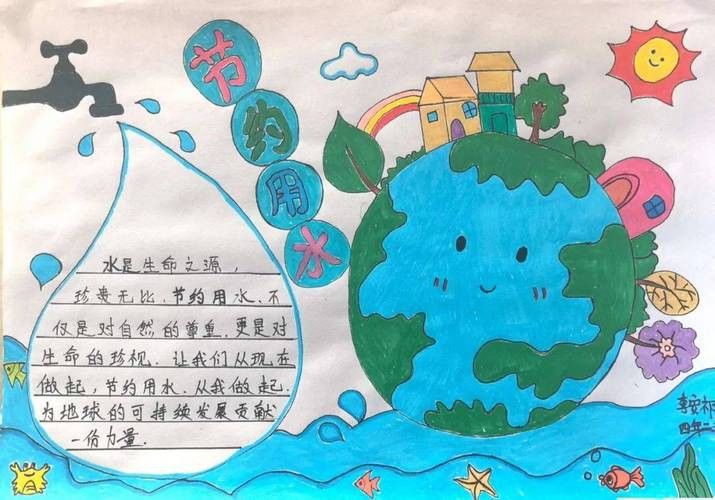 节约用水
水是生命之源，
珍贵无比.节约用水.不
仅是对自然的尊重.更是对
生命的珍视.让我们从现在
做起，节约用水.从我做起.
为地球的可持续发展贡献
一份力量.
四年二